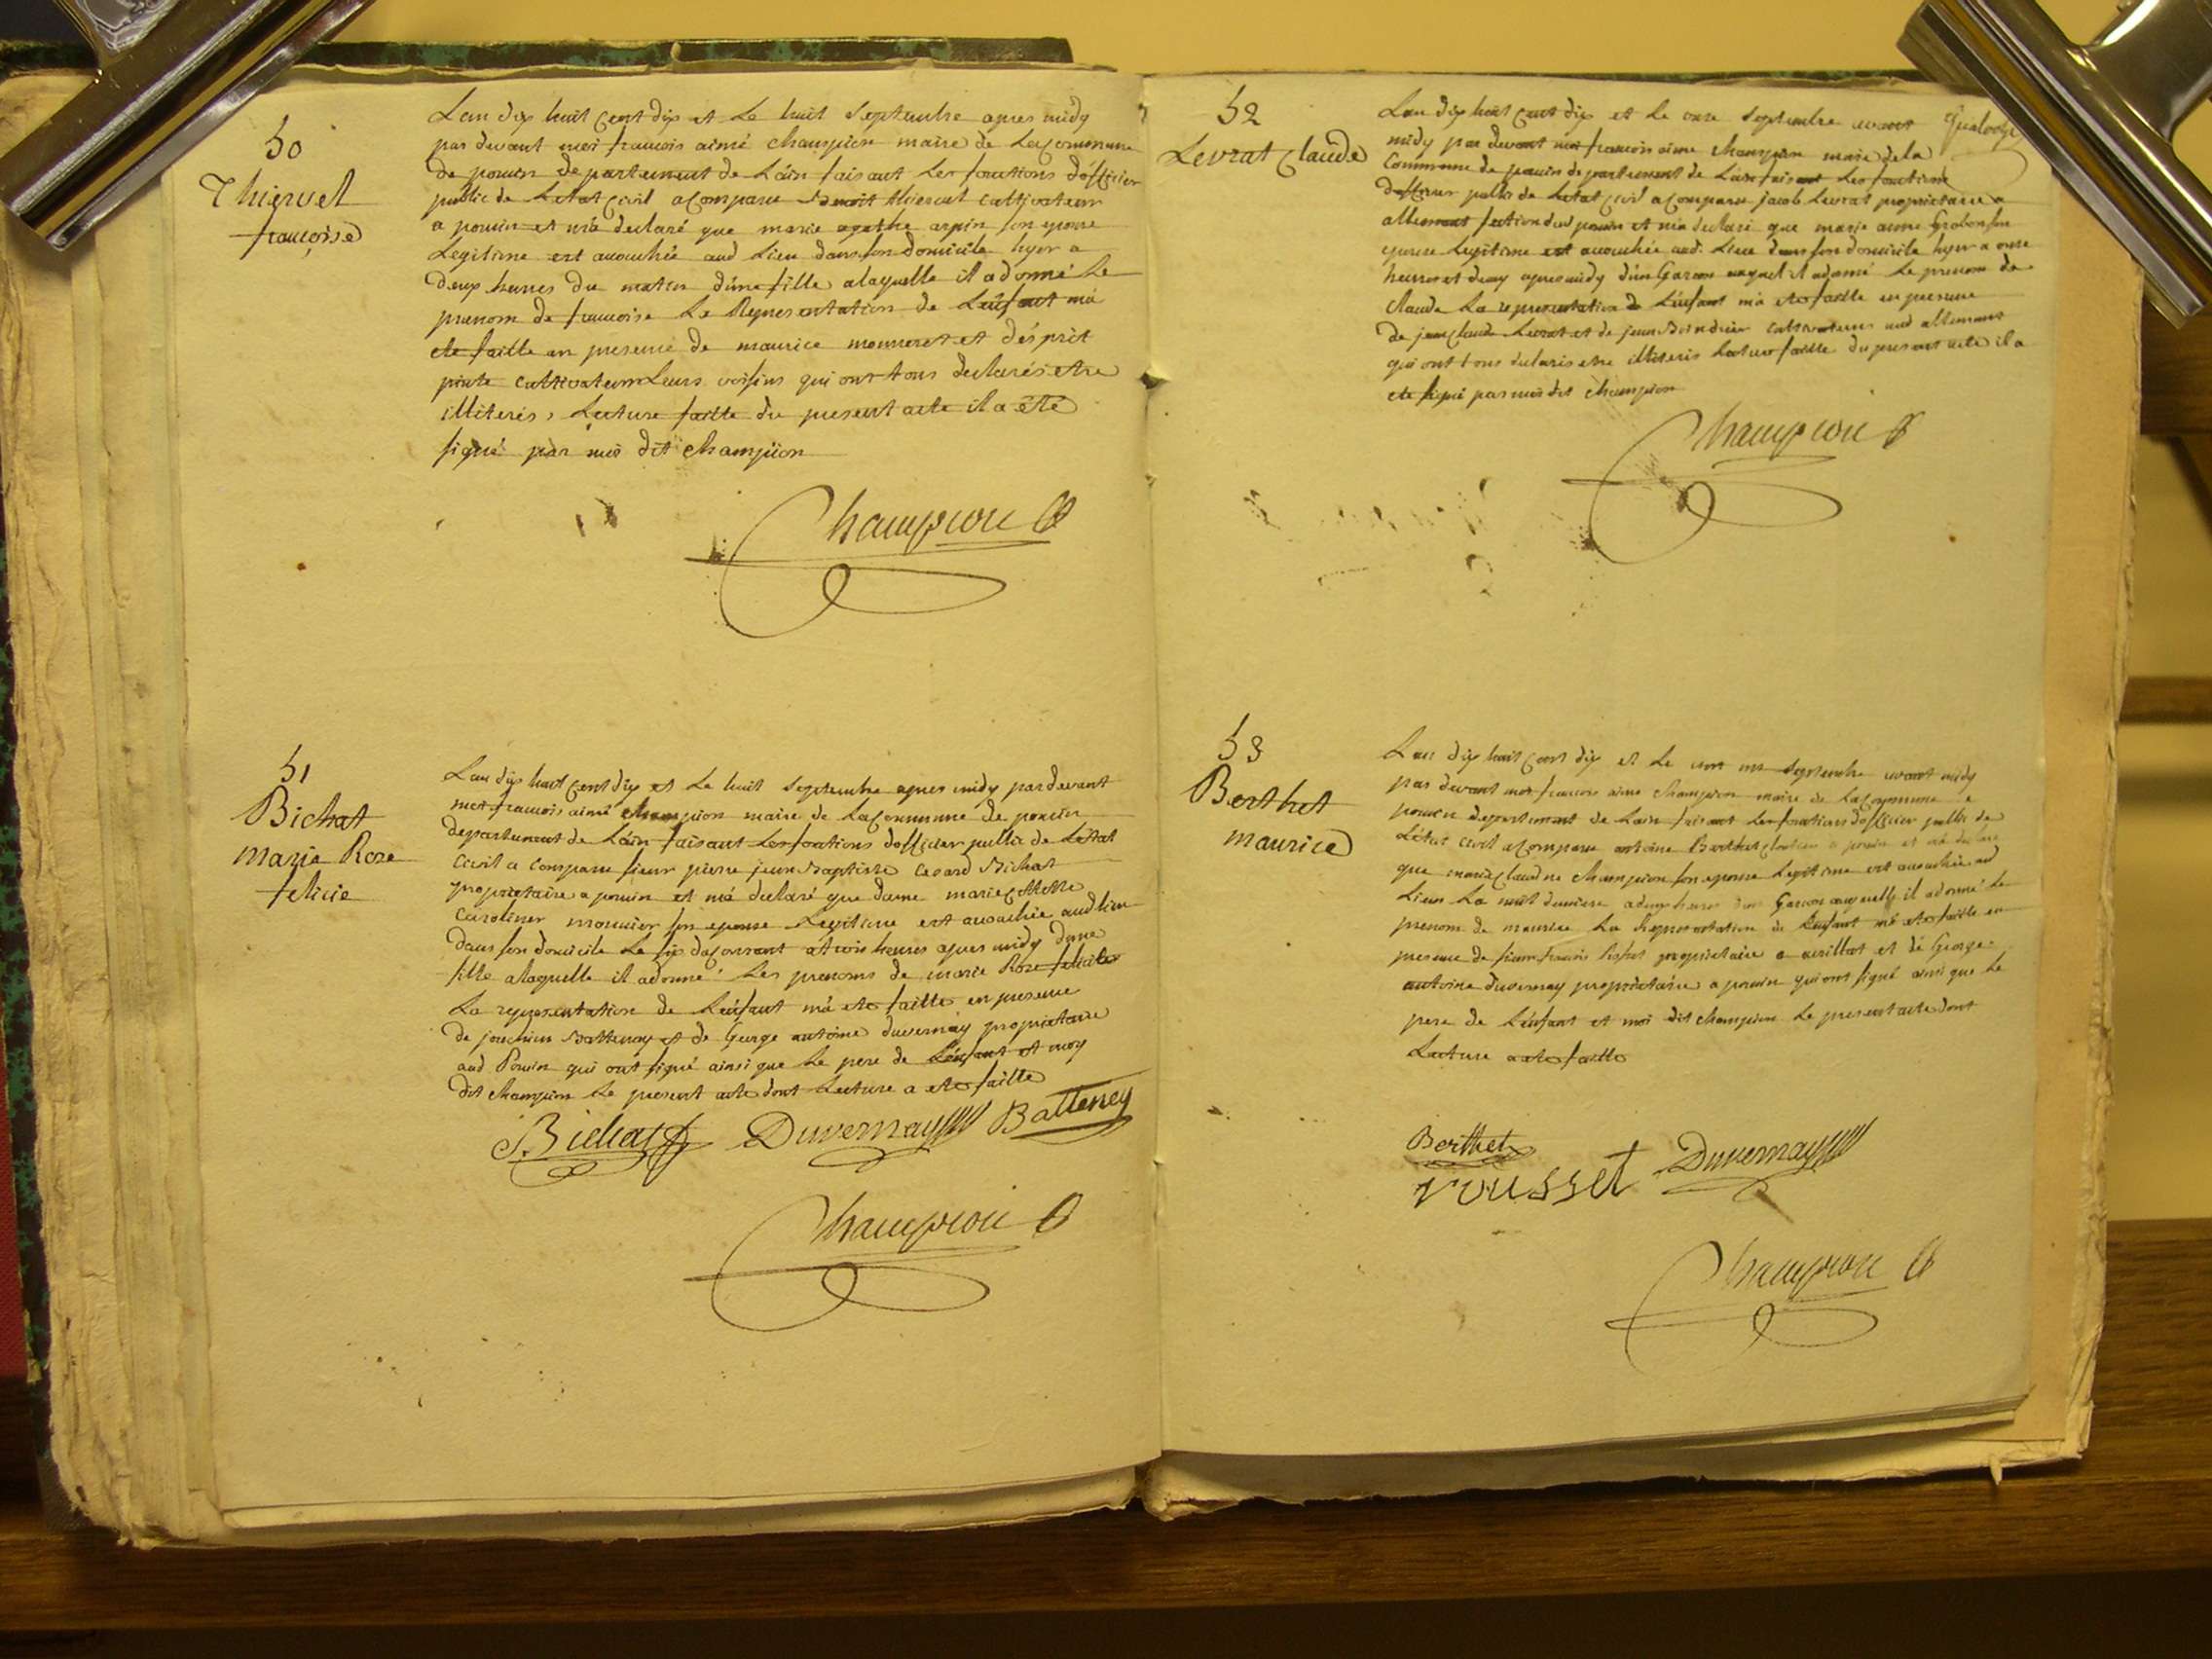 50
Thiervel
francoise
Lan dix huit cent dix et Le huit Septembre apres midy
par devant moi francois aimé Champion maire de La Commune
de poncin departement de Láin faisant Les fonctions dófficier
public de Letat civil a Comparu Benoit thiervel cultivateur
a poncin et má declaré que marie agathe arpin son epouse
Legitime est accouchée aud Lieu dans son domicile hyer a
deux heures du matin dúne fille a laquelle il a donné Le
prenom de francoise La Representation de Lénfant má
ete faitte en presence de maurice monneret et désprit
cultivateurs Leurs voisins qui ont tous declarés etre
illiterés, Lecture faitte du present acte il a été
signé par moi dit Champion
Champion
51
Bichat
marie Rose
felicie
Lan dix huit cent dix et Le huit Septembre apres midy pardevant
moi francois aimé Champion maire de La Commune de poncin
departement de Láin faisant Les fonctions dofficier public de Létat
civil a comparu sieur pierre jean Baptiste Bichat
proprietaire a poncin et má declaré que dame marie
monnier son epouse Legitime est accouchée aud lieu
dans son domicile Le six du Courrant a trois heures apres midy dune
fille a laquelle il a donné Les prenoms de marie Rose felicite
La representation de Lénfant má ete faitte en presence
de joachim Batteney et de George antoine duvernay proprietaire
aud Poncin qui ont signé ainsi que Le pere de Lénfant et moy
dit Champion Le present acte dont Lecture a ete faitte
Bichat Duvernay Batteney
Champion
52
Levrat Claude
Lan dix huit cent dix et Le onze Septembre avant
midy par devant moi francois aime Champion maire de la
Commune de poncin departement de Láin faisant Les fonctions
dofficier public de Letat civil a Comparu jacob Levrat proprietaire a
allement section dud poncin et má declaré que marie anne Grobon son
epouse Legitime est accouchée aud. Lieu dans son domicile hyer a onze
heures et demy apres midy dún Garcon auquel il a donné Le prenom de
Claude La representation de Lénfant má ete faitte en presence
de jean Claude Levrat et de jean cultivateurs aud allement
qui ont tous declarés etre illiterés Lecture faitte du present acte il a
ete signé par moi dit Champion
Champion
53
Berthet
maurice
Lan dix huit cent dix et Le Septembre avant midy
par devant moi francois aime Champion maire de La Commune de
poncin departement de Lain faisant Les fonctions dofficier public de
Létat civil a Comparu antoine Berthet a poncin et má declaré
que marie Claudine Champion son epouse Legitime est accouchée aud
Lieu La nuit derniere a deux heures dun Garcon auquelle il a donné Le
prenom de maurice La Representation de Lénfant má ete faitte en
presence de sieur francois proprietaire a et de George
antoine duvernay proprietaire a poncin qui ont signé ainsi que Le
pere de Lénfant et moi dit Champion Le present acte dont
Lecture a ete faitte
Berthet
rousset Duvernay
Champion